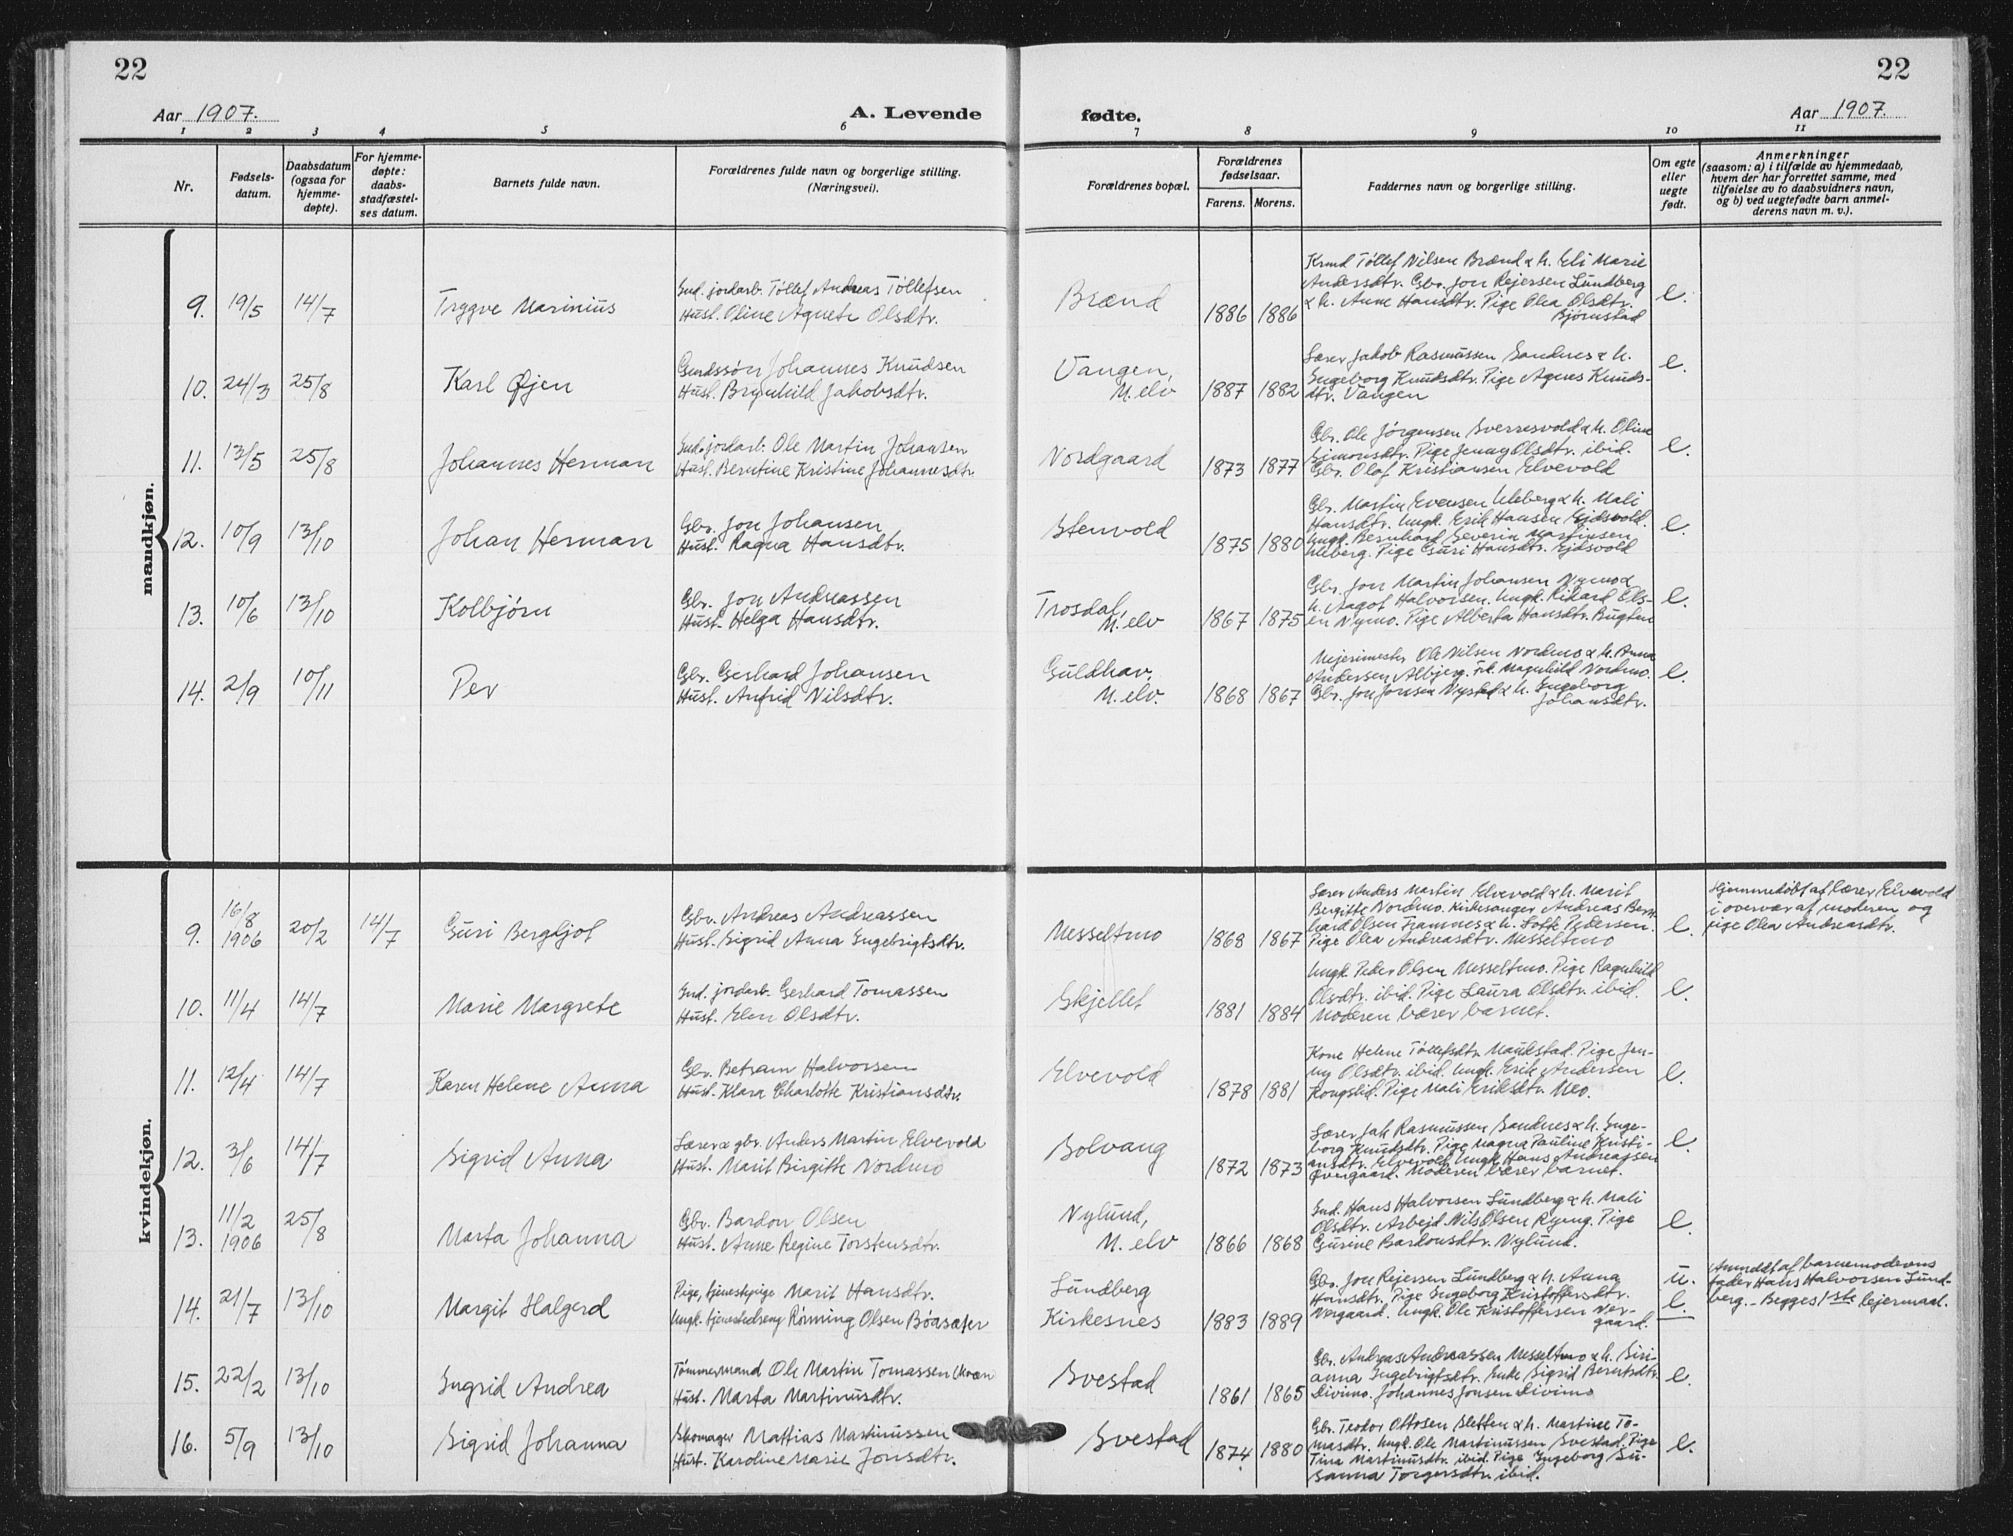 22
22
Aar 1907.
A. Levende
fødte.
Aar 1907.
1 2 3 4 5 6 7 8 9 10 11
Nr.
Fødsels-
datum.
Daabsdatum
(ogsaa for
hjemme-
døpte).
For hjemme-
døpte:
daabs-
stadfæstel-
ses datum.
Barnets fulde navn.
Forældrenes fulde navn og borgerlige stilling.
(Næringsvei).
Forældrenes bopæl.
Forældrenes
fødselsaar.
Farens. Morens.
Faddernes navn og borgerlige stilling.
Om egte
eller
uegte
født.
Anmerkninger
(saasom: a) i tilfælde av hjemmedaab,
hvem der har forrettet samme, med
tilføielse av to daabsvidners navn,
og b) ved uegtefødte barn anmel-
derens navn m. v.).
mandkjøn.
9. 19/5 14/7 Trygve Marinius
Ind. jordarb. Tøllef Andreas Tøllefsen
Hust. Oline Agnete Olsdtr.
Brænd
1886 1886
Knud Tøllef Nilsen Brænd & h. Eli Marie
Andersdtr. Gbr. Jon Rejersen Lundberg
& h. Anne Hansdtr. Pige Olea Olsdtr.
Bjørnstad
e.
10. 24/3 25/8 Karl Øjen
Gaardssøn Johannes Knudsen
Hust. Brynhild Jakobsdtr.
Vangen,
M. elv
1887 1882
Lærer Jakob Rasmussen Sandnes & h.
Ingeborg Knudsdtr. Pige Agnes Knuds-
dtr. Vangen
e.
11. 13/5 25/8 Johannes Herman
Ind. jordarb. Ole Martin Johansen
Hust. Berntine Kristine Johannesdtr.
Nordgaard
1873 1877
Gbr. Ole Jørgensen Sverresvold & h. Oline
Simonsdtr. Pige Jenny Olsdtr. ibid.
Gbr. Olaf Kristiansen Elvevold
e.
12. 10/9 13/10 Johan Herman
Gbr. Jon Johansen
Hust. Ragna Hansdtr.
Stenvold
1875 1880
Gbr. Martin Evensen Uleberg & h. Mali
Hansdtr. Ungk. Erik Hansen Ejdsvold.
Ungk. Bernhard Severin Martinsen
Uleberg. Pige Guri Hansdtr. Ejdsvold
e.
13. 10/6 13/10 Kolbjørn
Gbr. Jon Andreassen
Hust. Helga Hansdtr.
Trosdal,
M. elv
1867 1875
Gbr. Jon Martin Johansen Nymo &
h. Aagot Halvorsen. Ungk. Rikard Ols-
en Nymo. Pige Alberta Hansdtr. Bugten
e.
14. 2/9 10/11 Per
Gbr. Gerhard Johansen
Hust. Anfrid Nilsdtr.
Guldhav,
M. elv.
1868 1867
Mejerimester Ole Nilsen Nordmo & h. Anna
Andersen Albjerg. Frk. Magnhild Nordmo.
Gbr. Jon Jonsen Nysted & h. Ingeborg
Johansdtr.
e.
kvindekjøn.
9. 16/8 1906 20/2 14/7 Guri Bergljot
Gbr. Andreas Andreassen
Hust. Sigrid Anna Ingebrigtsdtr.
Messeltmo
1868 1867
Lærer Anders Martin Elvevold & h. Marit
Bergitte Nordmo. Kirkesanger Andreas Bern-
hard Olsen Framnes & h. Lotte Pedersen.
Pige Olea Andreasdtr. Messeltmo
e.
Hjemmedøbt af lærer Elvevold
i overvær af moderen og
pige Olea Andreasdtr.
10. 11/4 14/7 Marie Margrete
Ind. jordarb. Gerhard Tomassen
Hust. Elen Olsdtr.
Skjellet
1881 1884
Ungk. Peder Olsen Messeltmo. Pige Ragnhild
Olsdtr. ibid. Pige Laura Olsdtr. ibid.
Moderen bærer barnet.
e.
11. 12/4 14/7 Karen Helene Anna
Gbr. Betram Halvorsen
Hust. Klara Charlotte Kristiansdtr.
Elvevold
1878 1881
Kone Helene Tøllefsdtr. Maukstad. Pige Jen-
ny Olsdtr. ibid. Ungk. Erik Andersen
Kongslid. Pige Mali Eriksdtr. Mo.
e.
12. 3/6 14/7 Sigrid Anna
Lærer & gbr. Anders Martin Elvevold
Hust. Marit Birgitte Nordmo
Solvang
1872 1873
Lærer Jak. Rasmussen Sandnes & h. Inge-
borg Knudsdtr. Pige Magna Pauline Kristi-
ansdtr. Elvevold. Ungk. Hans Andreassen
Øvergaard. Moderen bærer barnet.
e.
13. 11/2 1906 25/8 Marta Johanna
Gbr. Bardon Olsen
Hust. Anne Regine Torstensdtr.
Nylund,
M. elv
1866 1868
Ind. Hans Halvorsen Lundberg & h. Mali
Olsdtr. Arbejd. Nils Olsen Ryeng. Pige
Gurine Bardonsdtr. Nylund.
e.
14. 21/7 13/10 Margit Halgerd
Pige, tjenestepige Marit Hansdtr.
Ungk. tjenestedreng Rønning Olsen Bøasæter
Lundberg
Kirkesnes
1883 1889
Gbr. Jon Rejersen Lundberg & h. Anna
Hansdtr. Pige Ingeborg Kristoffersdtr.
Nergaard. Ungk. Ole Kristoffersen Ner-
gaard.
u.
e.
Anmeldt af barnemoderens
fader Hans Halvorsen Lund-
berg. - Begges 1ste lejermaal.
15. 22/2 13/10 Ingrid Andrea
Tømmermand Ole Martin Tomassen (Kvæn
Hust. Marta Martinusdtr.
Svestad
1861 1865
Gbr. Andreas Andreassen Messeltmo & h. Siri-
anna Ingebrigtsdtr. Enke Sigrid Berntsdtr.
Divimo. Johannes Jonsen Divimo
e.
16. 5/9 13/10 Sigrid Johanna
Skomager Mattias Martinussen
Hust. Karoline Marie Jonsdtr.
Svestad
1874 1880
Gbr. Teodor Ottosen Sletten & h. Martine To-
masdtr. Ungk. Ole Martinussen Svestad. Pige
Tina Martinusdtr. ibid. Pige Ingeborg Su-
sanna Torgersdtr. ibid.
e.